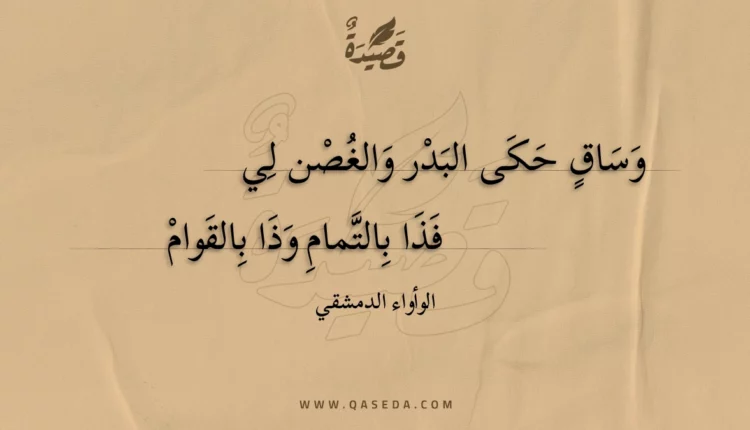 قَصِيدَةٌ
وَسَاقٍ حَكَى البَدْر وَالغُصْن لِي
فَذَا بِالتَّمامِ وَذَا بِالقَوامْ
الوأواء الدمشقي
WWW.QASEDA.COM